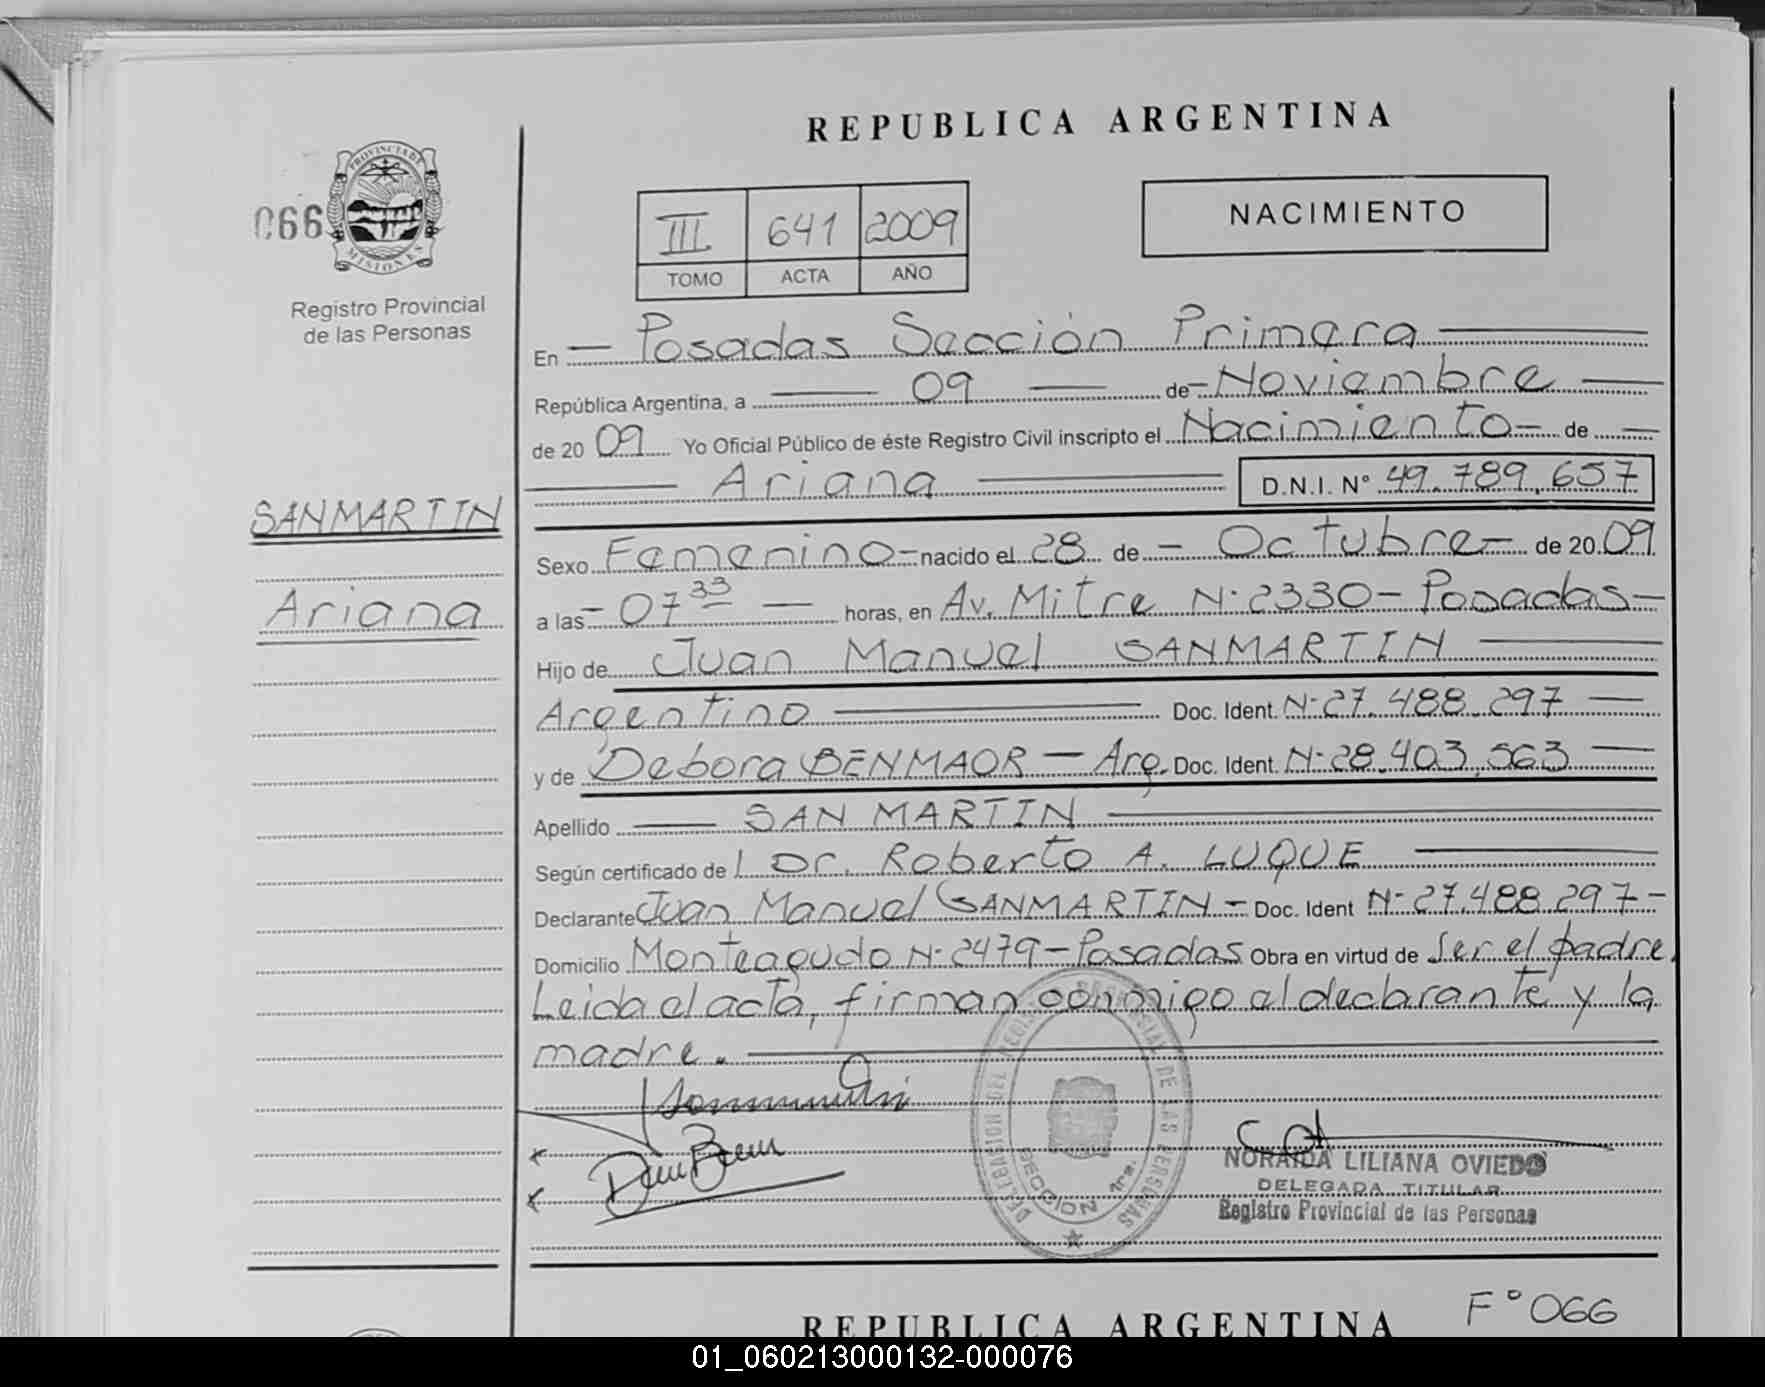 REPUBLICA ARGENTINA
066
PROVINCIA DE
MISIONES
Registro Provincial
de las Personas
III 641 2009
TOMO ACTA AÑO
NACIMIENTO
En - Posadas Sección Primera
República Argentina, a 09 de - Noviembre
de 20 09 Yo Oficial Público de éste Registro Civil inscripto el Nacimiento - de -
Ariana D.N.I. N° 49.789.657
SANMARTIN
Ariana
Sexo Femenino - nacido el 28 de - Octubre - de 20 09
a las - 07 33 - horas, en Av. Mitre N° 2330 - Posadas -
Hijo de Juan Manuel SANMARTIN
Argentino Doc. Ident. N° 27.488.297
y de Debora BENMAOR - Arg. Doc. Ident. N° 28.403.563
Apellido SAN MARTIN
Según certificado de Dr. Roberto A. LUQUE
Declarante Juan Manuel SANMARTIN - Doc. Ident N° 27.488.297 -
Domicilio Monteagudo N° 2479 - Posadas Obra en virtud de Ser el padre.
Leida el acta, firman conmigo el declarante y la
madre.
DELEGACION DEL REGISTRO PROVINCIAL DE LAS PERSONAS
SECCION 1ra.
NORAIDA LILIANA OVIEDO
DELEGADA TITULAR
Registro Provincial de las Personas
F° 066
REPUBLICA ARGENTINA
01_060213000132-000076